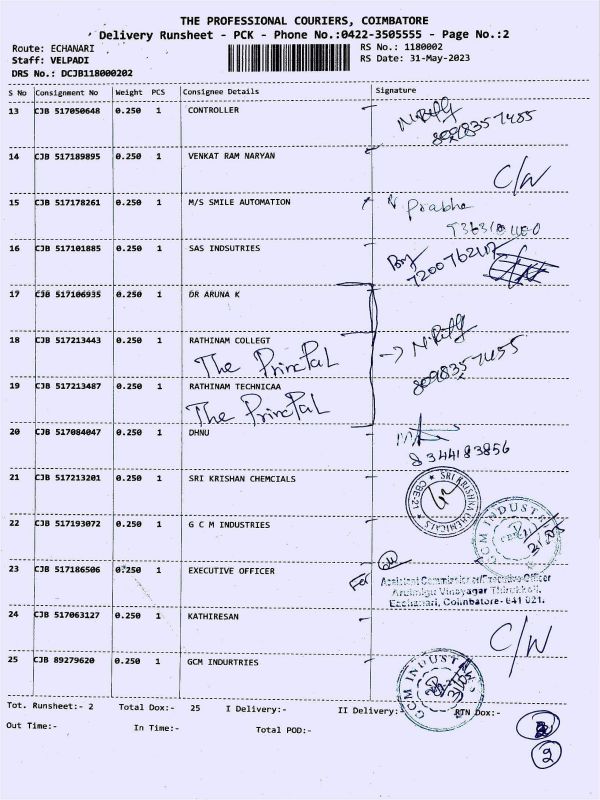 THE PROFESSIONAL COURIERS, COIMBATORE
Delivery Runsheet - PCK - Phone No.:0422-3505555 - Page No.:2
Route: ECHANARI RS No.: 1180002
Staff: VELPADI RS Date: 31-May-2023
DRS No.: DCJB118000202
S No Consignment No Weight PCS Consignee Details Signature
13 CJB 517050648 0.250 1 CONTROLLER
14 CJB 517189895 0.250 1 VENKAT RAM NARYAN
C/W
15 CJB 517178261 0.250 1 M/S SMILE AUTOMATION Prabha
16 CJB 517101885 0.250 1 SAS INDSUTRIES
17 CJB 517106935 0.250 1 DR ARUNA K
18 CJB 517213443 0.250 1 RATHINAM COLLEGT
The PrincPal
19 CJB 517213487 0.250 1 RATHINAM TECHNICAA
The PrincPal
20 CJB 517084047 0.250 1 DHNU
8344183856
21 CJB 517213201 0.250 1 SRI KRISHAN CHEMCIALS
SRI KRISHNA CHEMICALS CBE-21
22 CJB 517193072 0.250 1 G C M INDUSTRIES
GCM INDUST
23 CJB 517186506 0.250 1 EXECUTIVE OFFICER
For
Assistant Commissioner/Executive Officer
Arulmigu Vinayagar Thirukkoil,
Eachanari, Coimbatore- 641 021.
24 CJB 517063127 0.250 1 KATHIRESAN
C/W
25 CJB 89279620 0.250 1 GCM INDURTRIES
GCM INDUST
Tot. Runsheet:- 2 Total Dox:- 25 I Delivery:- II Delivery:- RTN Dox:-
Out Time:- In Time:- Total POD:-
2